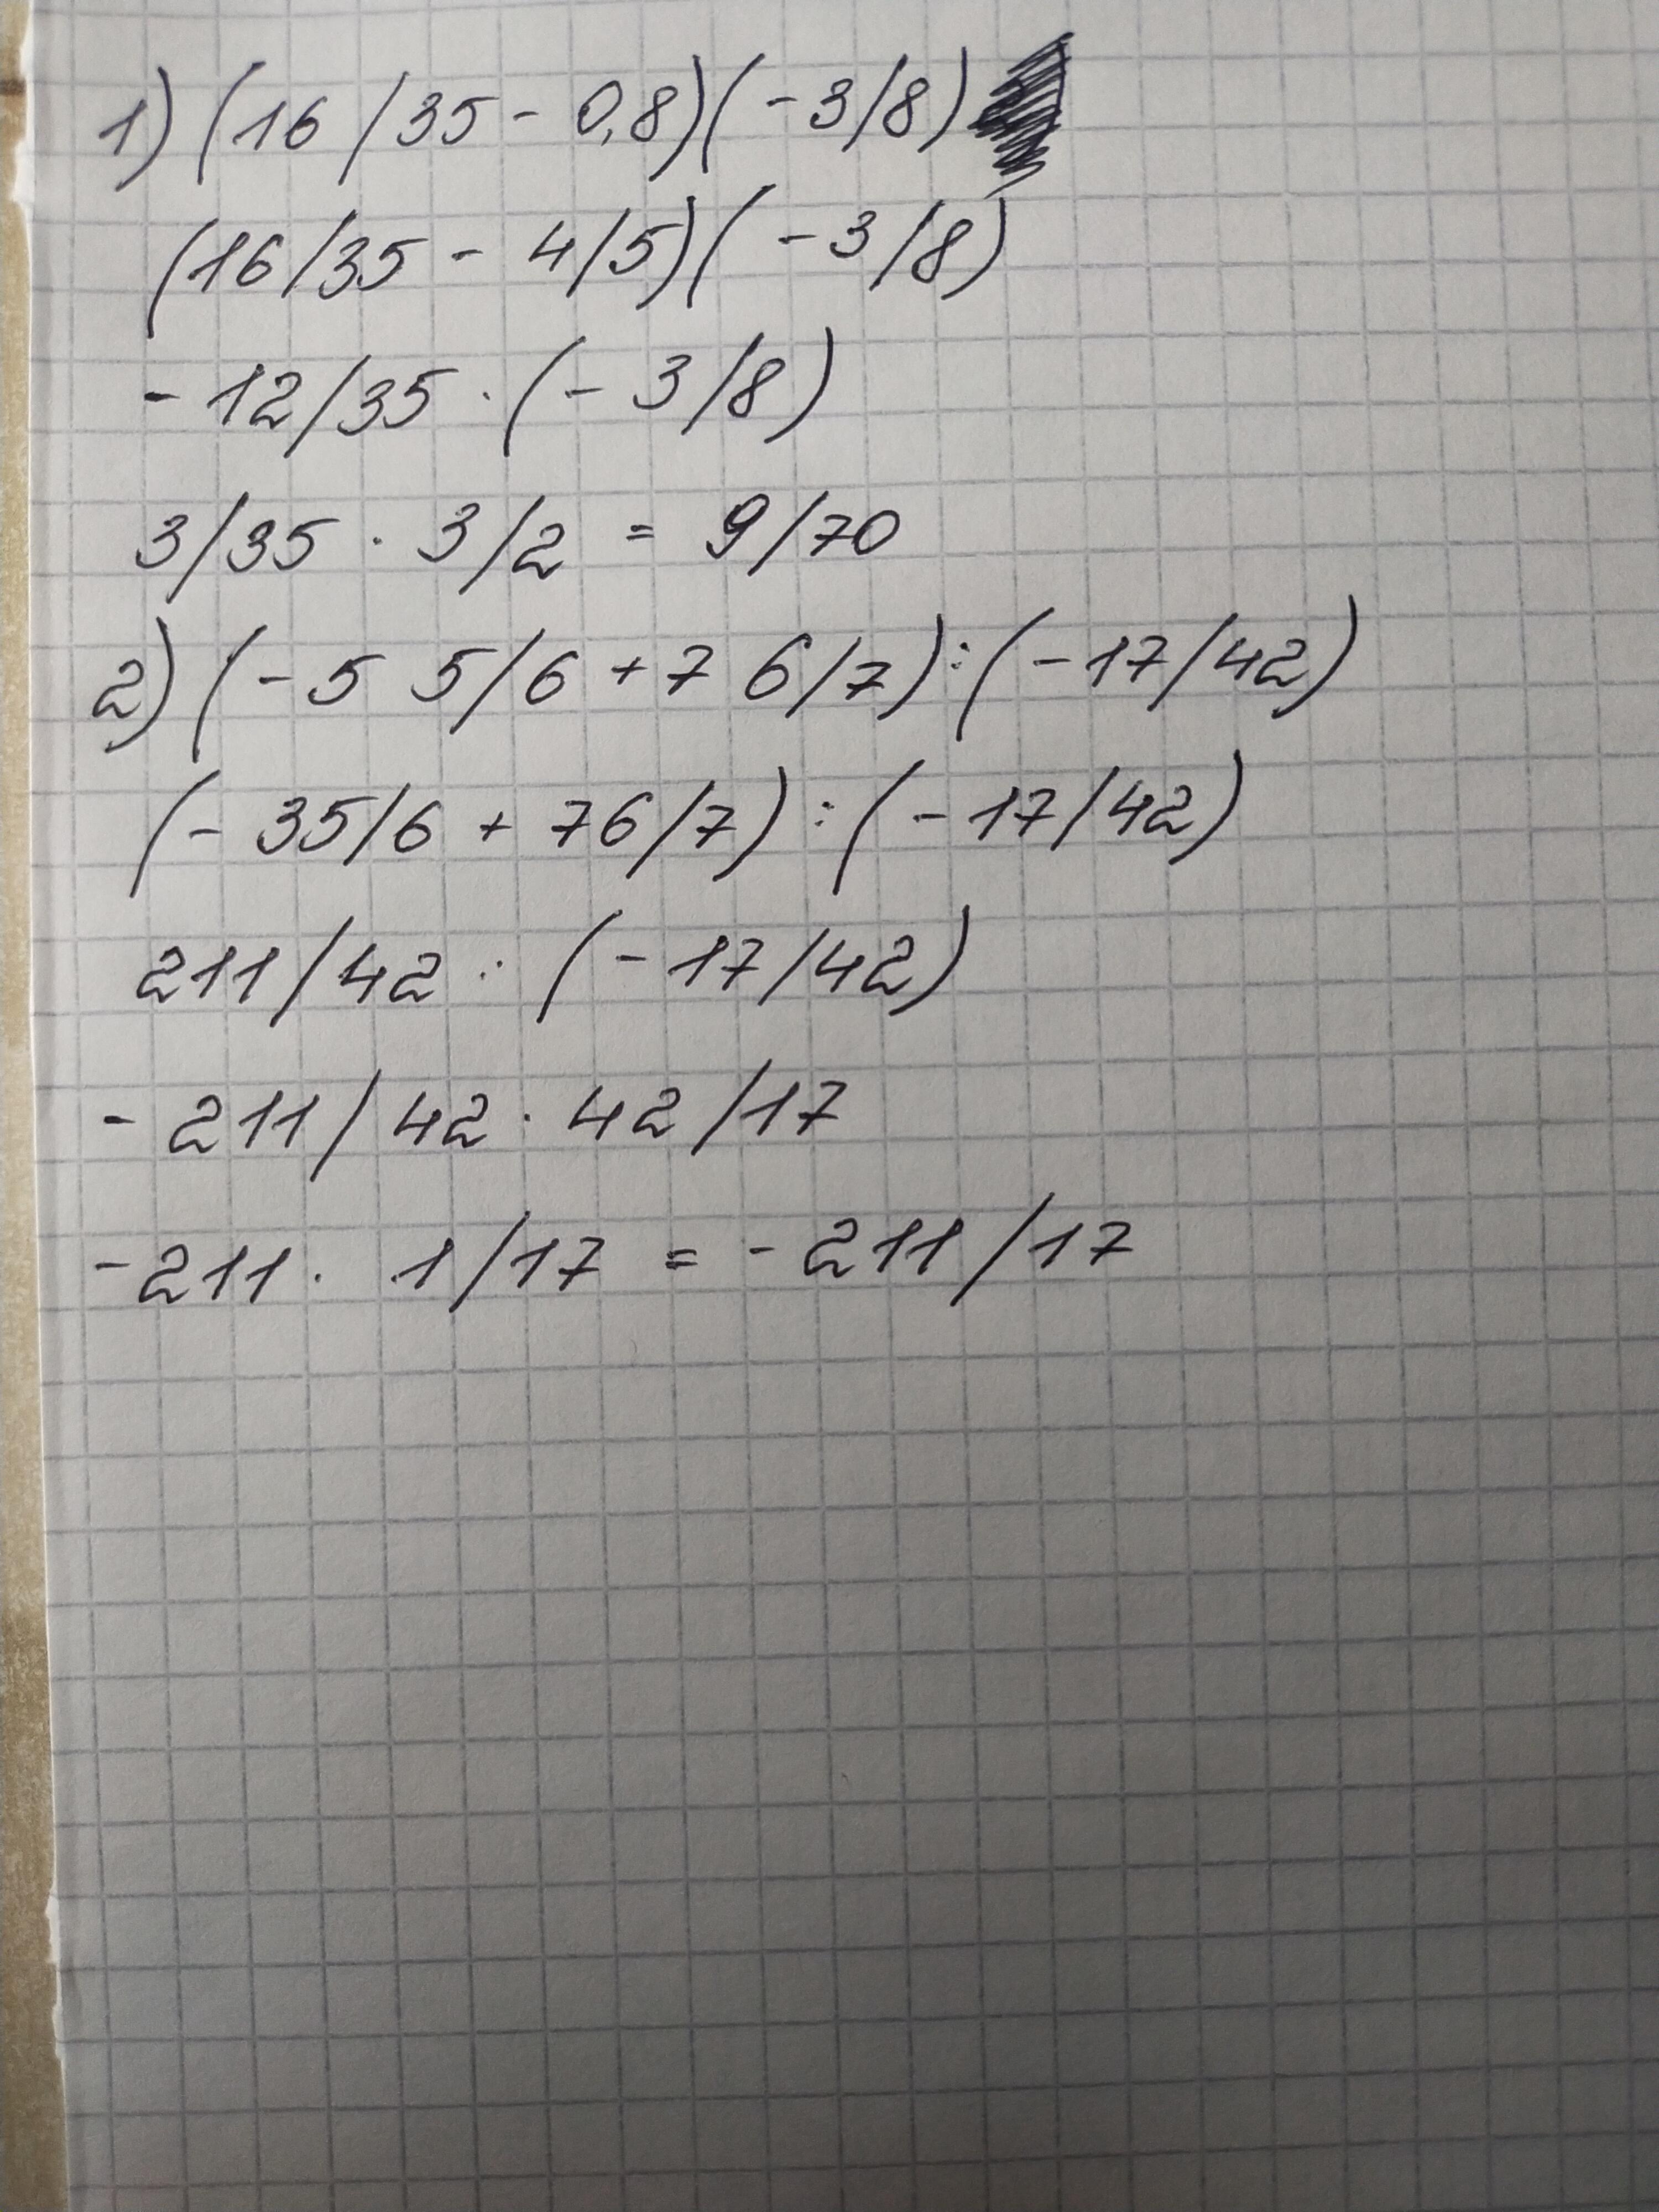 1) (16/35 - 0,8)(-3/8)
(16/35 - 4/5)(-3/8)
- 12/35 · (- 3/8)
3/35 · 3/2 = 9/70
2) (-5 5/6 + 7 6/7) : (-17/42)
(- 35/6 + 76/7) : (-17/42)
211/42 : (-17/42)
- 211/42 · 42/17
-211 · 1/17 = -211/17